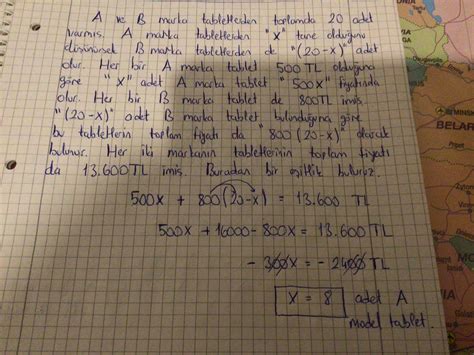 A ve B marka tabletlerden toplamda 20 adet
varmış. A marka tabletlerden "X" tane olduğunu
düşünürsek B marka tabletlerden de "(20-x)" adet
olur. Her bir A marka tablet 500 TL olduğuna
göre "X" adet A marka tablet "500x" fiyatında
olur. Her bir B marka tablet de 800TL imiş.
"(20-x)" adet B marka tablet bulunduğuna göre
bu tabletlerin toplam fiyatı da "800(20-x)" olarak
bulunur. Her iki markanın tabletlerinin toplam fiyatı
da 13.600TL imiş. Buradan bir eşitlik buluruz.
500x + 800(20-x) = 13.600 TL
500x + 16000 - 800x = 13.600
- 300x = - 2400 TL
x = 8 adet A
model tablet.
MINSK
BELAR